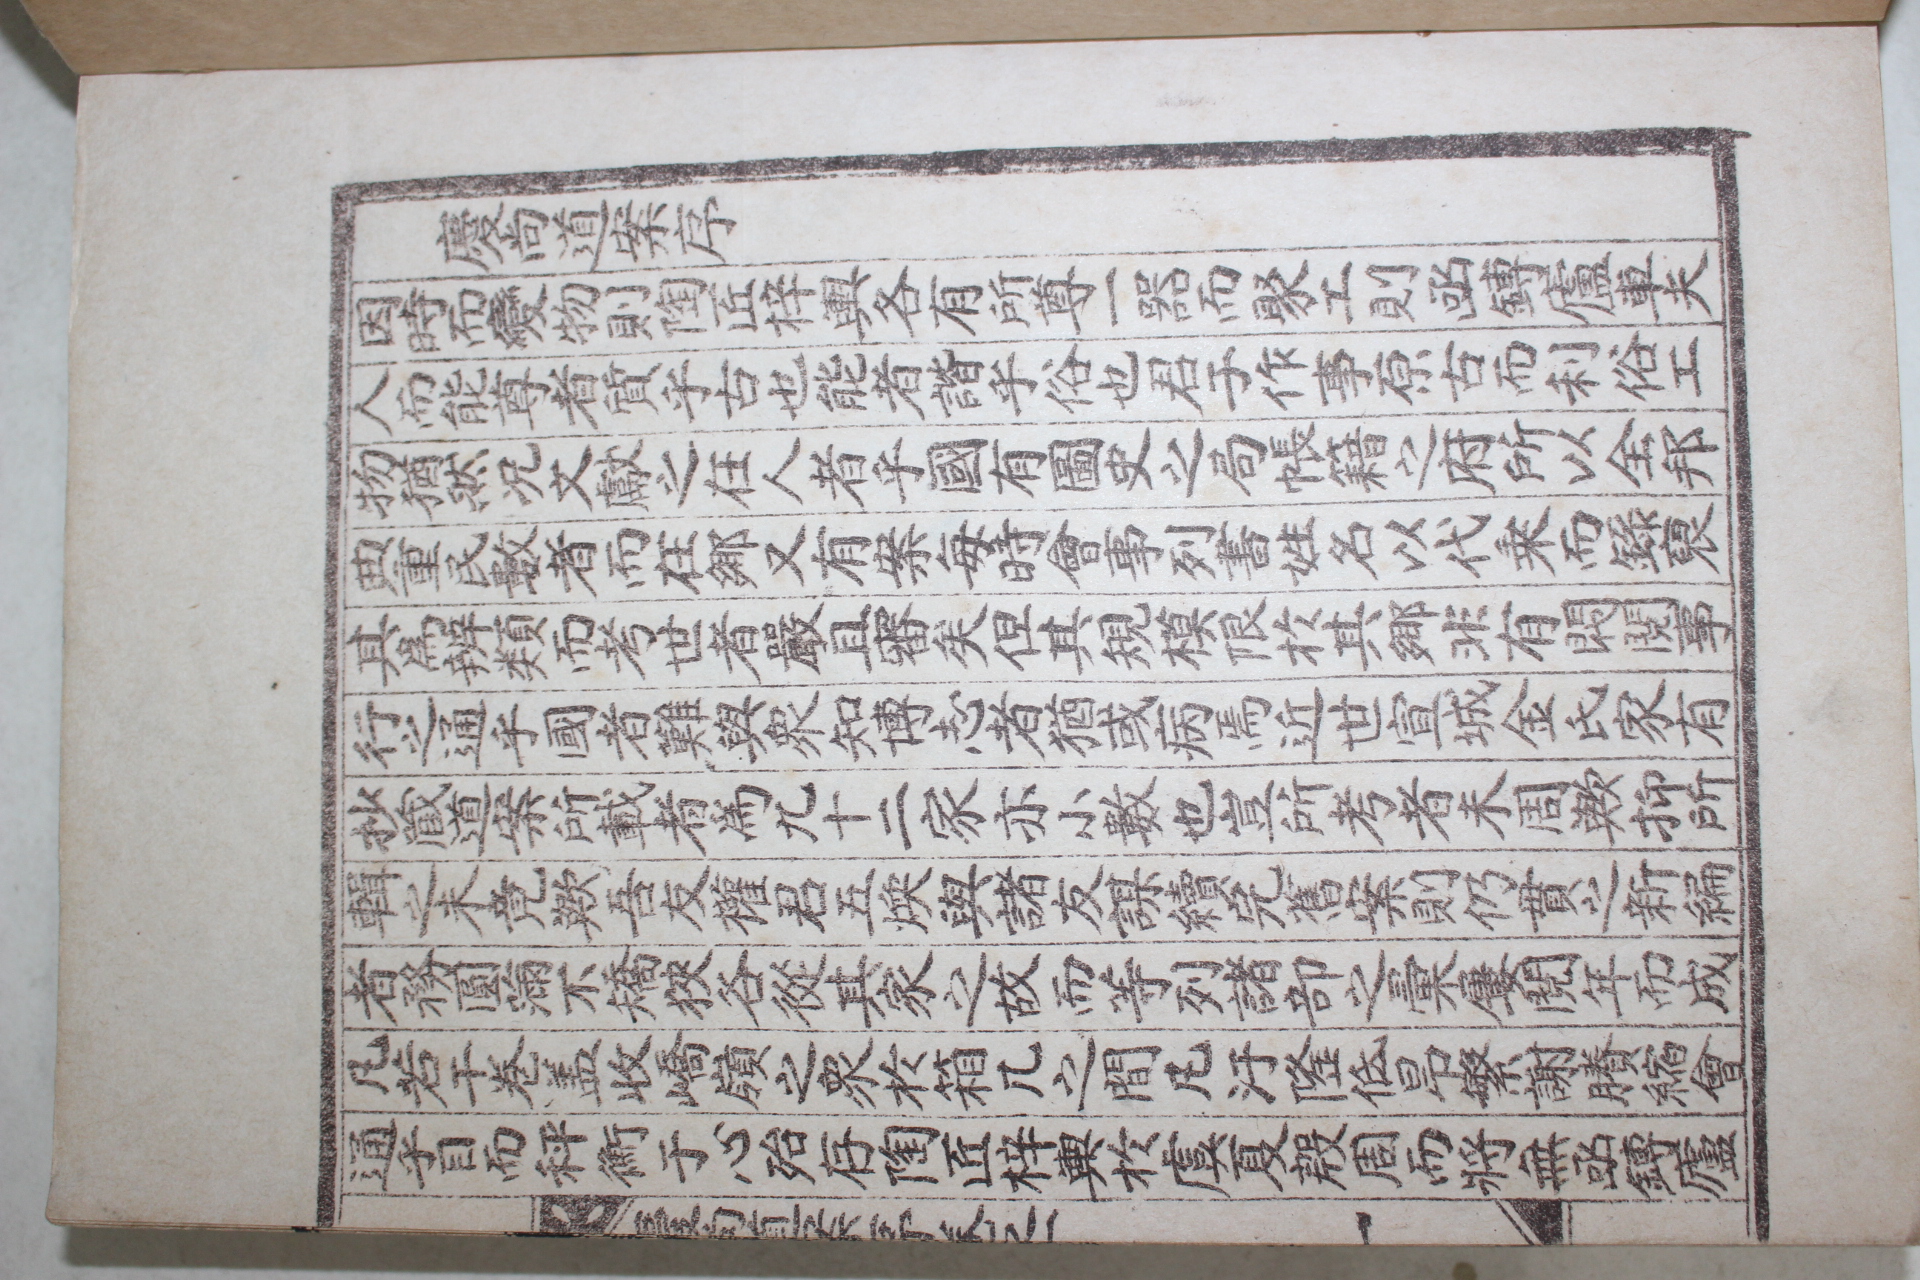 慶尚道案序
因時而變物則陶匠梓輿各有所尊一器而聚工則凾鎛廬車夫
人而能尊者質乎古也能者諧乎俗也君子作事原古而利俗工
物猶然况文獻之在人者乎國有圖史之局帳籍之府所以全邦
典重民數者而在鄉又有案每時會事列書姓名以代乘而錄裒
其爲辨類而考世者嚴且審矣但其規模限於其鄉非有閥閱事
行之通乎國者難與衆知博志者猶或病焉近世宣城金氏家有
抄蔵道案所載者爲九十二家亦小數也豈所考者未周歟抑所
輯之未竟歟吾友權君五煥與諸友謀續完舊案則仍貫之新編
者務圓滿不矯狹各從其家之故而等列諸部之彙屢閱年而成
凡若干卷盖收嶠嶺之衆於箱几之間凡汙隆低昂繁謝賸縮會
通乎目而秤衡于心殆存陶匠梓輿於虞夏殷周而將無凾鎛廬
慶尚道案序卷之一
一